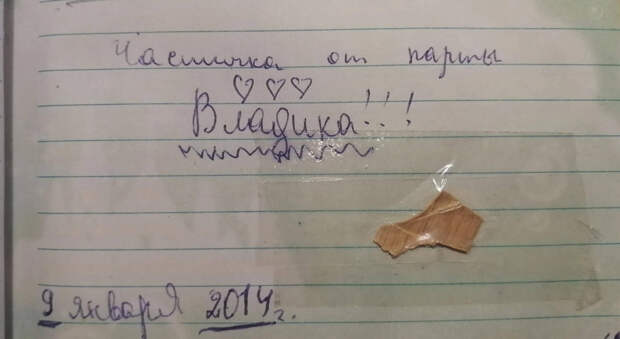 Частичка от парты
Владика!!!
9 января 2014г.